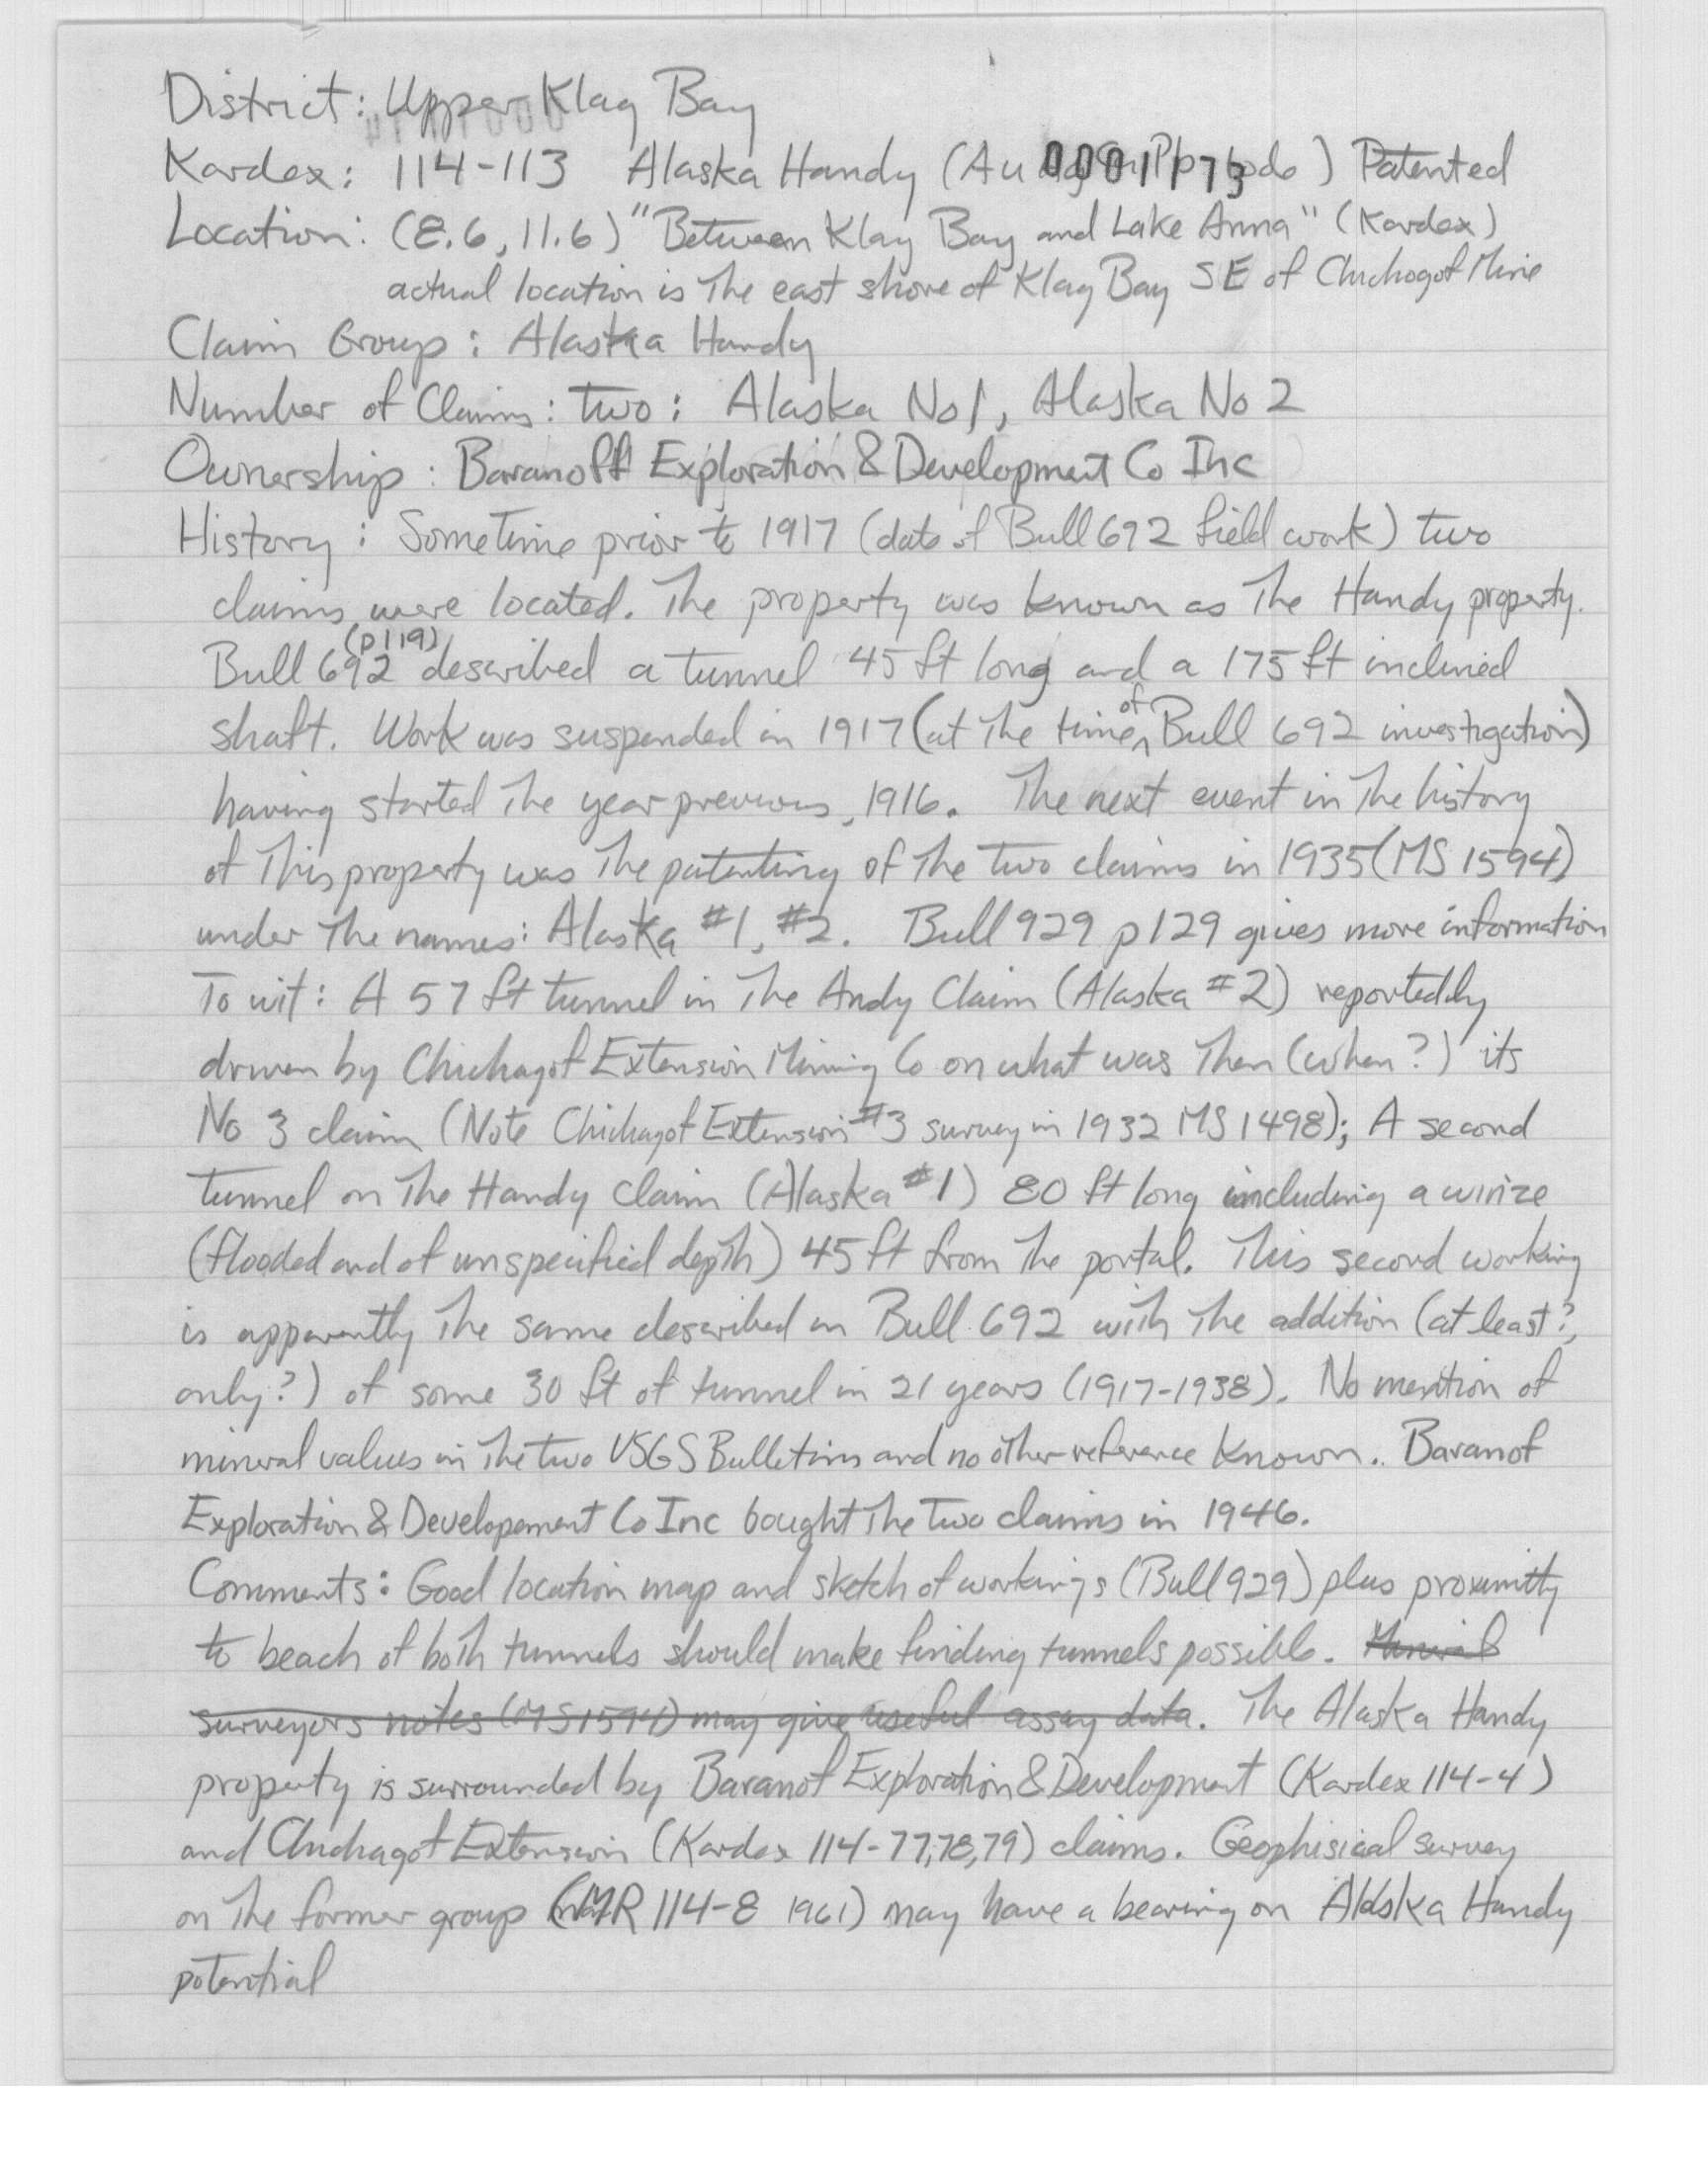 District: Upper Klag Bay
Kardex: 114-113 Alaska Handy (Au 0001173 lode) Patented
Location: (8.6, 11.6) "Between Klag Bay and Lake Anna" (Kardex)
actual location is the east shore of Klag Bay SE of Chichagof Mine
Claim Group: Alaska Handy
Number of Claims: two: Alaska No 1, Alaska No 2
Ownership: Baranoff Exploration & Development Co Inc
History: Sometime prior to 1917 (date of Bull 692 field work) two
claims were located. The property was known as the Handy property.
Bull 692 (p119) described a tunnel 45 ft long and a 175 ft inclined
shaft. Work was suspended in 1917 (at the time of Bull 692 investigation)
having started the year previous, 1916. The next event in the history
of this property was the patenting of the two claims in 1935 (MS 1594)
under the names: Alaska #1, #2. Bull 929 p129 gives more information
To wit: A 57 ft tunnel in the Andy Claim (Alaska #2) reportedly
driven by Chichagof Extension Mining Co on what was then (when?) its
No 3 claim (Note Chichagof Extension #3 survey in 1932 MS 1498); A second
tunnel on the Handy Claim (Alaska #1) 80 ft long including a winze
(flooded and of unspecified depth) 45 ft from the portal. This second working
is apparently the same described in Bull. 692 with the addition (at least?,
only?) of some 30 ft of tunnel in 21 years (1917-1938). No mention of
mineral values in the two USGS Bulletins and no other reference known. Baranof
Exploration & Developement Co Inc bought the two claims in 1946.
Comments: Good location map and sketch of workings (Bull 929) plus proximity
to beach of both tunnels should make finding tunnels possible. Mineral
surveyors notes (MS 1594) may give useful assay data. The Alaska Handy
property is surrounded by Baranof Exploration & Development (Kardex 114-4)
and Chichagof Extension (Kardex 114-77,78,79) claims. Geophisical survey
on the former group (MR 114-8 1961) may have a bearing on Alaska Handy
potential